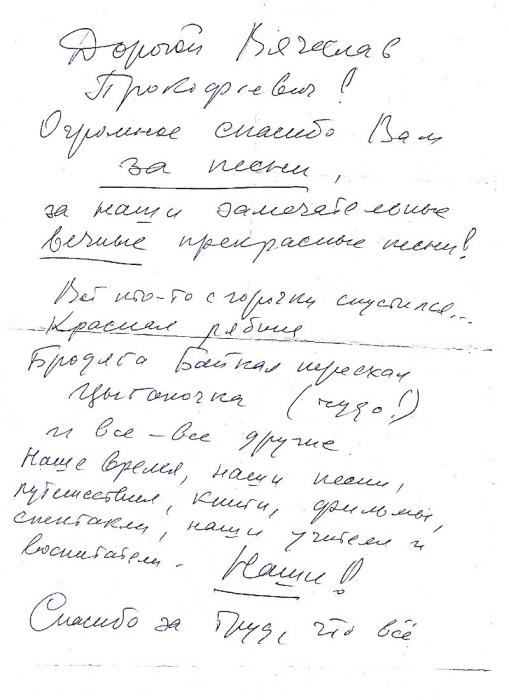 Дорогой Вячеслав
Прокофьевич!
Огромное спасибо Вам
за песни,
за наши замечательные
вечные прекрасные песни!
Вот кто-то с горочки спустился...
Красная рябина
Бродяга Байкал переехал
Цыганочка (чудо!)
и все-все другие
Наше время, наши песни,
путешествия, книги, фильмы,
спектакли, наши учителя и
воспитатели. Наши!
Спасибо за Труд, что всё